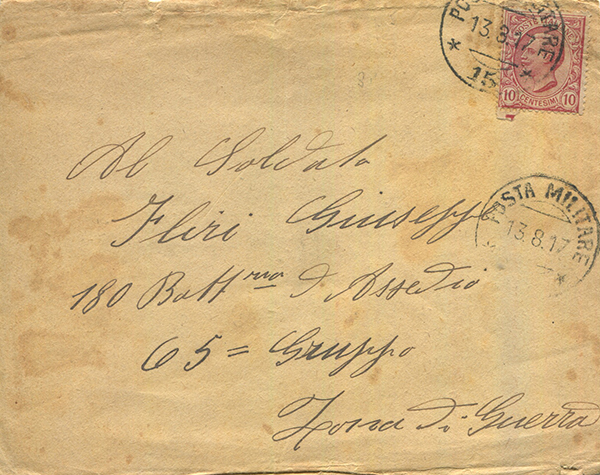 POSTA MILITARE
13.8.17
15
POSTE
10 CENTESIMI 10
Al Soldato
Fliri Giuseppe
POSTA MILITARE
13.8.17
180 Batt.ria d'Assedio
65= Gruppo
Zona di Guerra